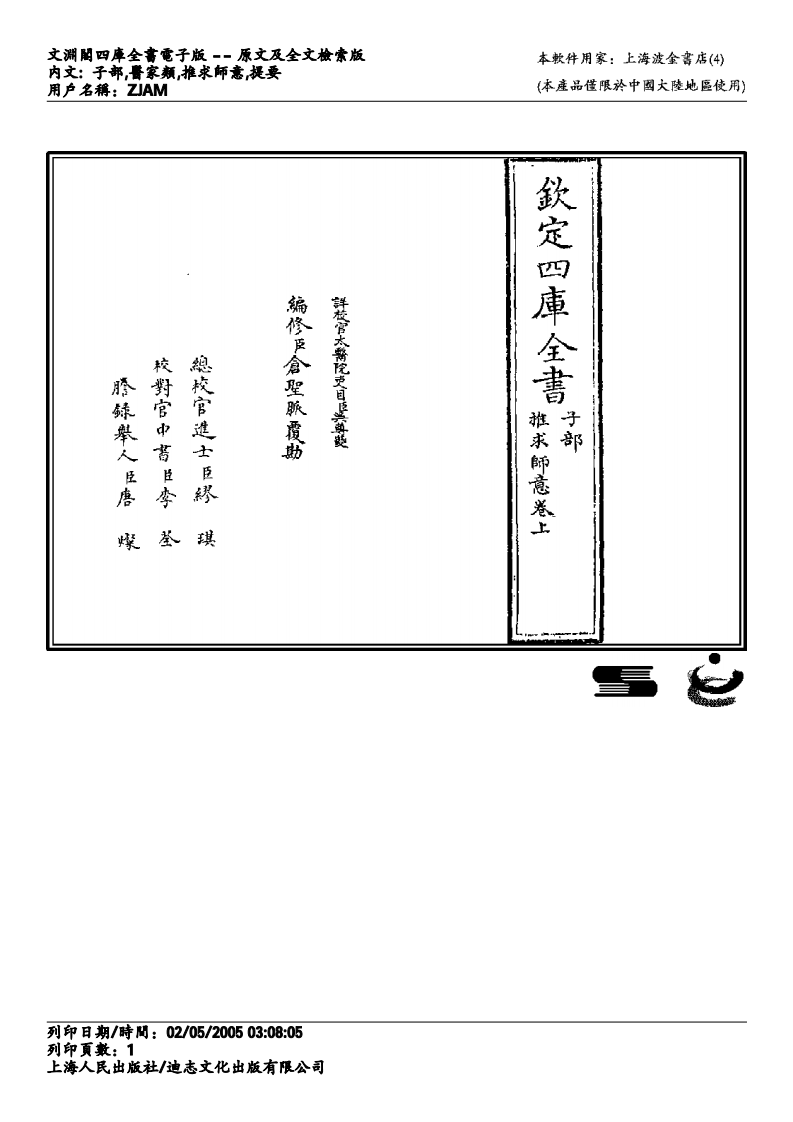 文淵閣四庫全書電子版 -- 原文及全文檢索版
內文: 子部,醫家類,推求師意,提要
用戶名稱: ZJAM
本軟件用家: 上海波金書店(4)
(本產品僅限於中國大陸地區使用)
欽定四庫全書
子部
推求師意卷上
詳校官太醫院吏目臣吳尊夔
編修臣倉聖脈覆勘
總校官進士臣繆琪
校對官中書臣李荃
謄錄舉人臣唐燦
列印日期/時間: 02/05/2005 03:08:05
列印頁數: 1
上海人民出版社/迪志文化出版有限公司